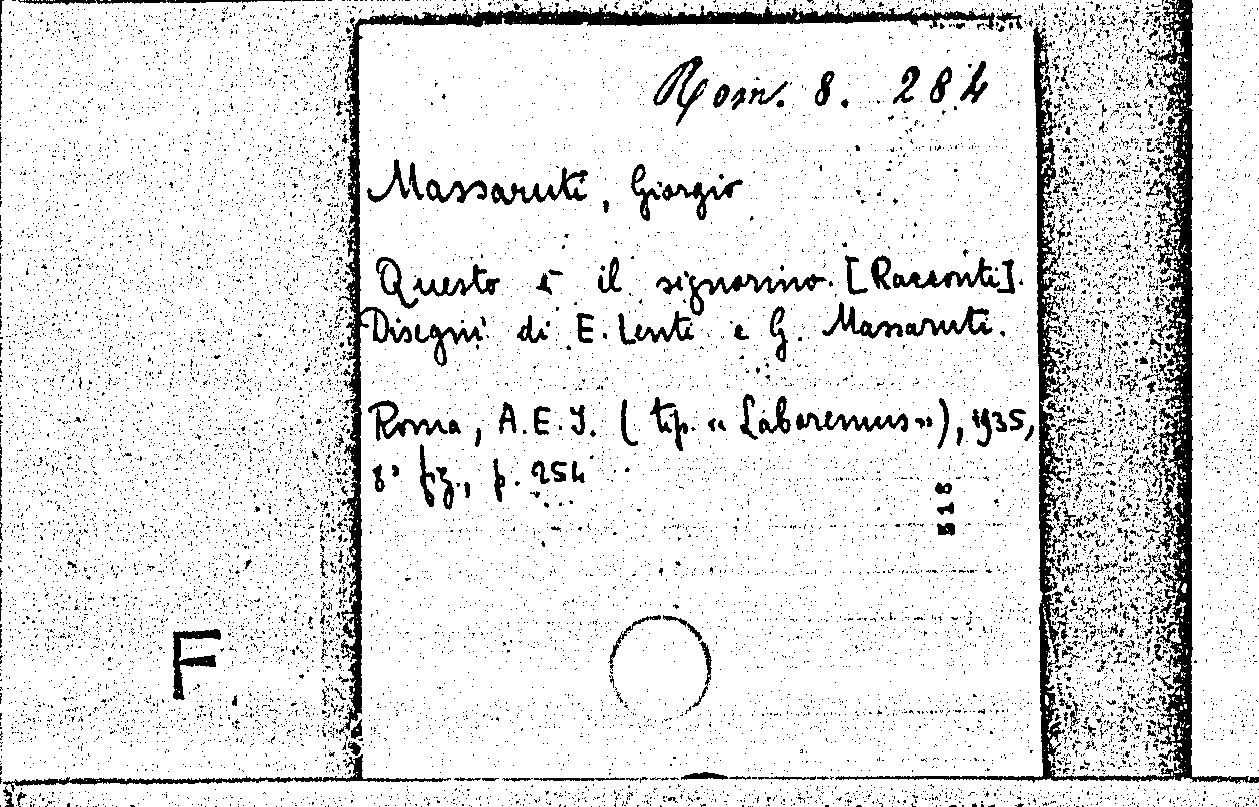 Rom. 8. 284
Massaruti, Giorgio
Questo è il signorino. [Racconti].
Disegni di E. Lenti e G. Massaruti.
Roma, A.E.I. (tip. «Laboremus»), 1935,
8° fig., p. 254
518
F